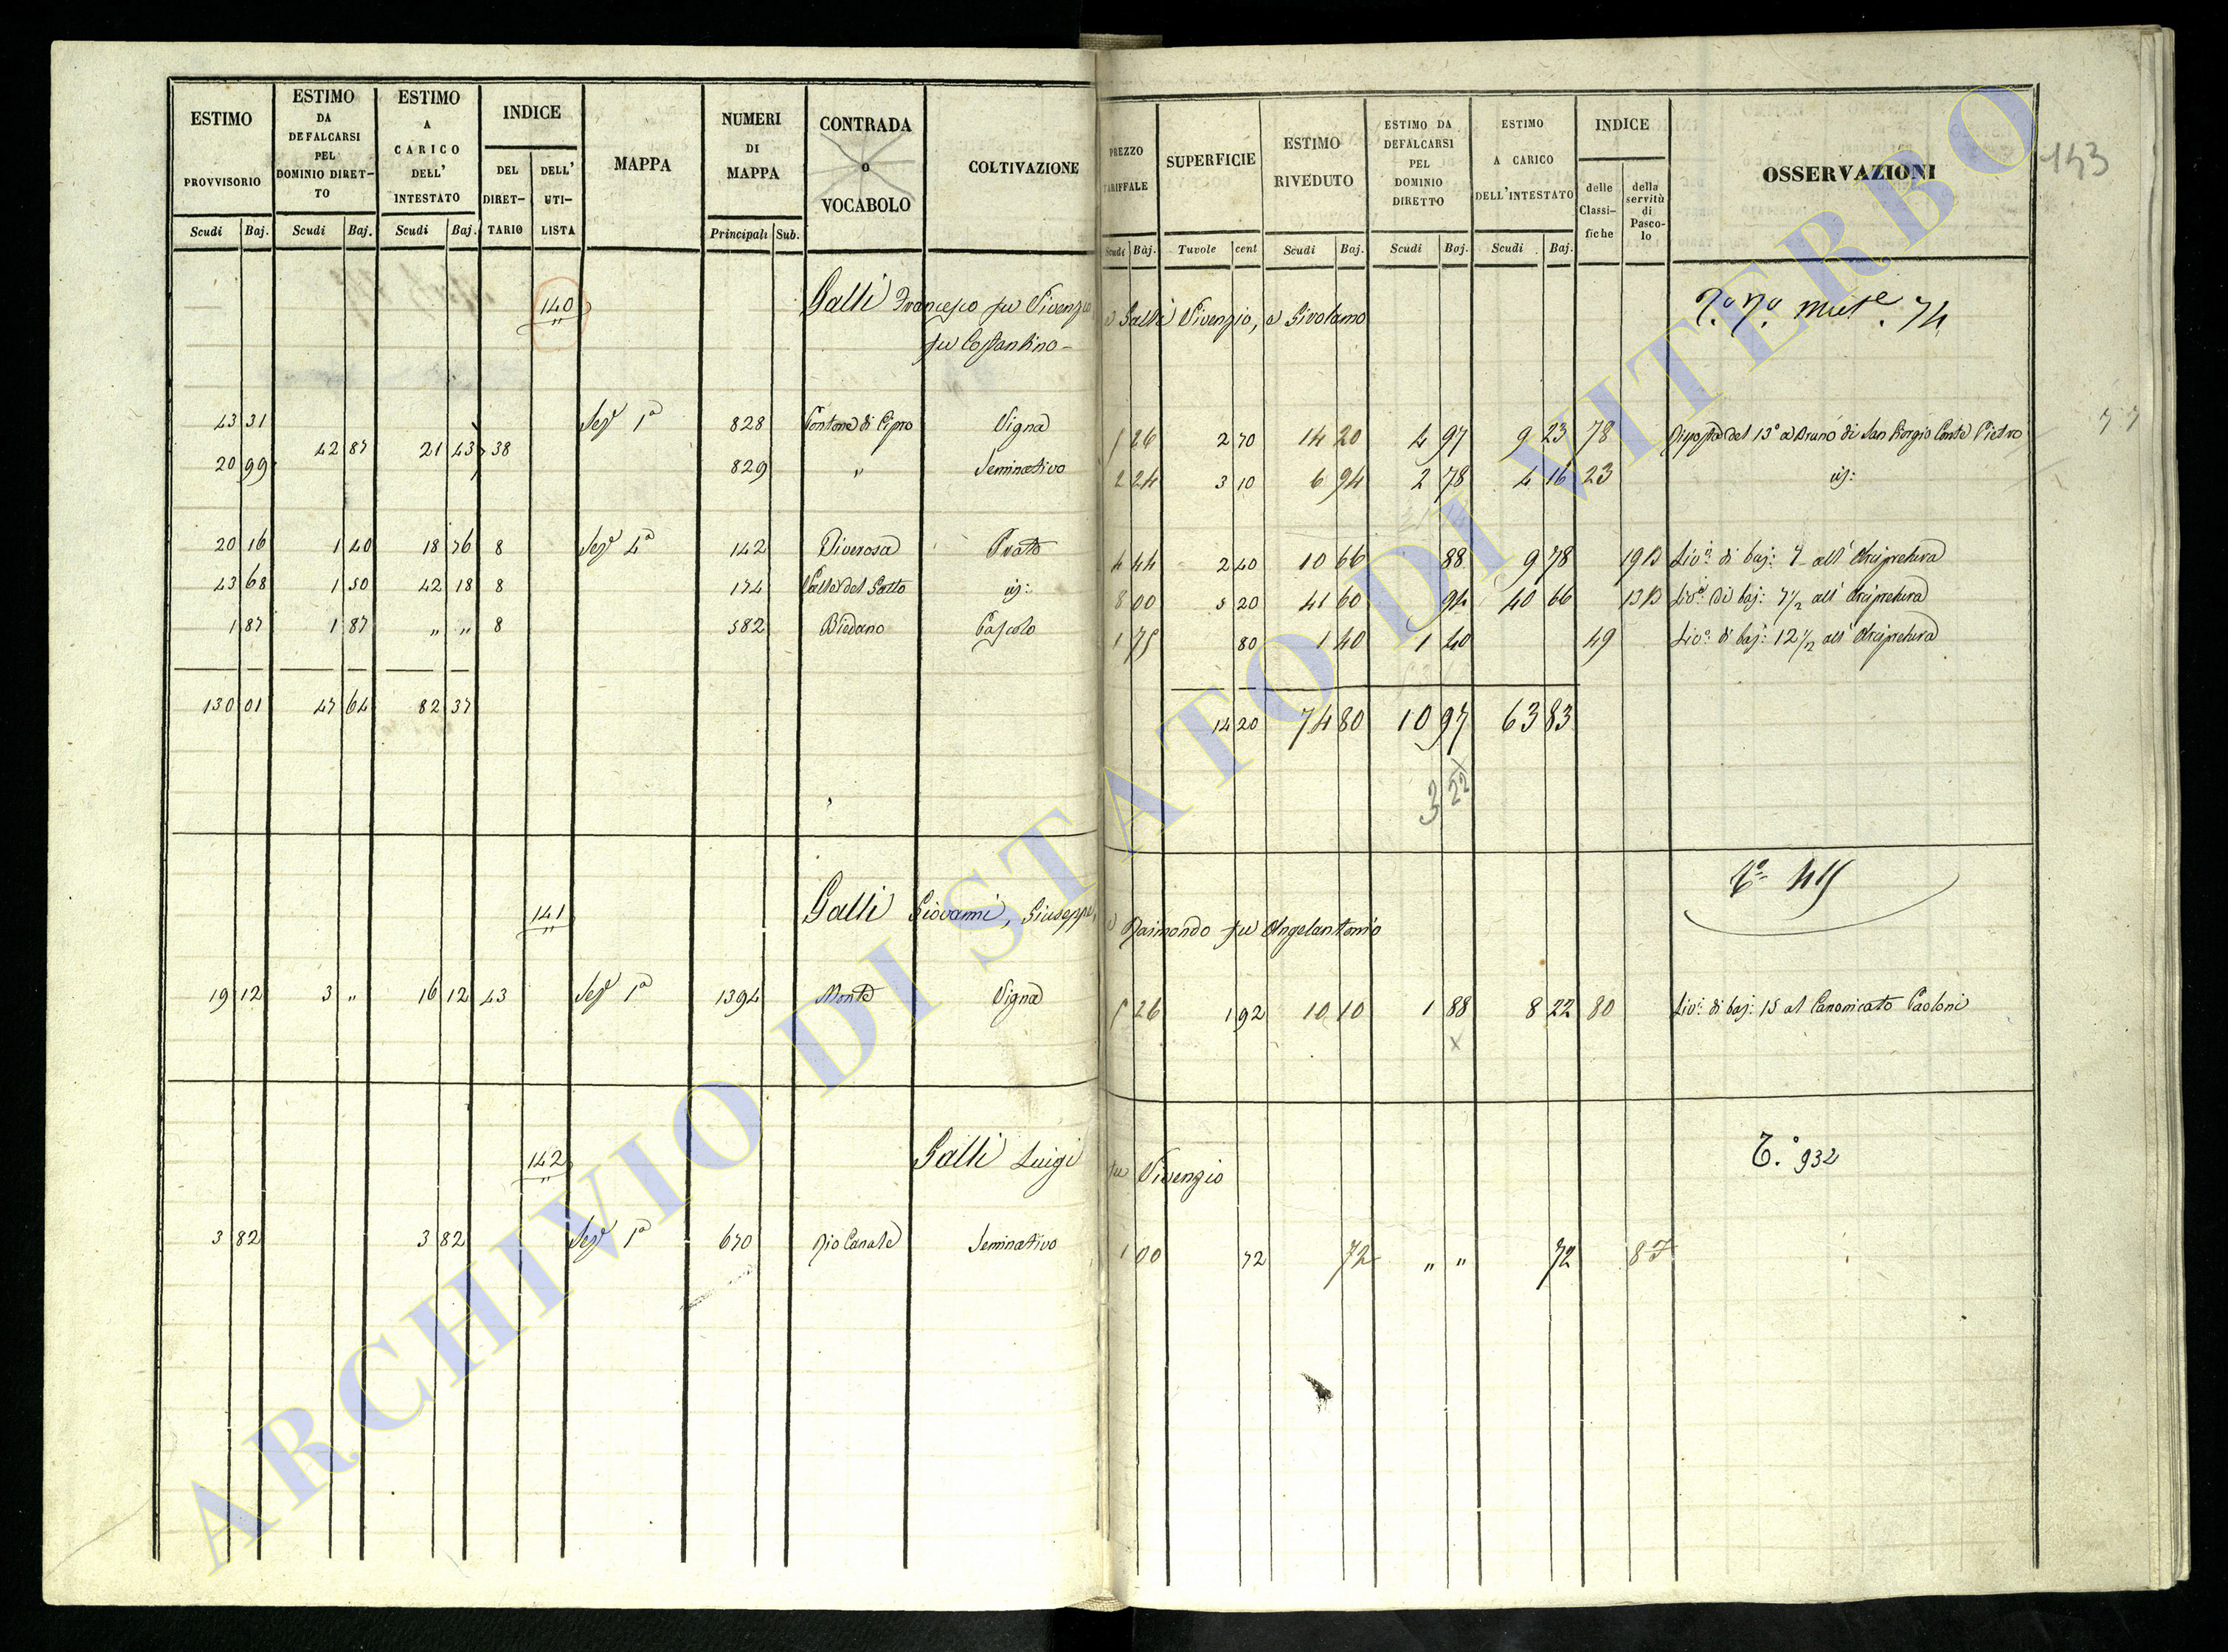 ESTIMO PROVVISORIO Scudi Baj.
ESTIMO DA DEFALCARSI PEL DOMINIO DIRETTO Scudi Baj.
ESTIMO A CARICO DELL' INTESTATO Scudi Baj.
INDICE DEL DIRETTARIO DELL' UTILISTA
MAPPA
NUMERI DI MAPPA Principali Sub.
CONTRADA o VOCABOLO
COLTIVAZIONE
PREZZO TARIFFALE Scudi Baj.
SUPERFICIE Tavole cent
ESTIMO RIVEDUTO Scudi Baj.
ESTIMO DA DEFALCARSI PEL DOMINIO DIRETTO Scudi Baj.
ESTIMO A CARICO DELL' INTESTATO Scudi Baj.
INDICE delle Classifiche della servitù di Pascolo
OSSERVAZIONI
143
140 Galli Francesco fu Vivenzio e Galli Vivenzio, e Girolamo
fu Costantino
74
43 31 Sez.e 1a 828 Vigna 5 26 2 70 14 20 4 97 9 23 78 Risposta del 13o a Bruno di San Giorgio Conte Pietro
42 87 21 43 38
20 99 829 " Seminativo 2 24 3 10 6 94 2 78 4 16 23 id:
20 16 1 40 18 76 8 Sez.e 4a 142 Prato 4 44 2 40 10 66 88 9 78 19 B Liv.o di baj: 7 all' Arcipretura
43 68 1 50 42 18 8 174 Valle del Gatto id: 8 00 5 20 41 60 94 40 66 13 B Liv.o di baj: 7 1/2 all' Arcipretura
1 87 1 87 " " 8 582 Biedano Pascolo 1 75 80 1 40 1 40 49 Liv.o di baj: 12 1/2 all' Arcipretura
130 01 47 64 82 37 14 20 74 80 10 97 63 83
3 22
141 Galli Giovanni, Giuseppe, e Raimondo fu Angelantonio
19 12 3 " 16 12 43 Sez.e 1a 1394 Monte Vigna 5 26 1 92 10 10 1 88 8 22 80 Liv.o di baj: 15 al Canonicato Paoloni
x
142 Galli Luigi fu Vivenzio T.o 932
3 82 3 82 Sez.e 1a 670 Rio Canale Seminativo 1 00 72 72 " " 72 8
ARCHIVIO DI STATO DI VITERBO